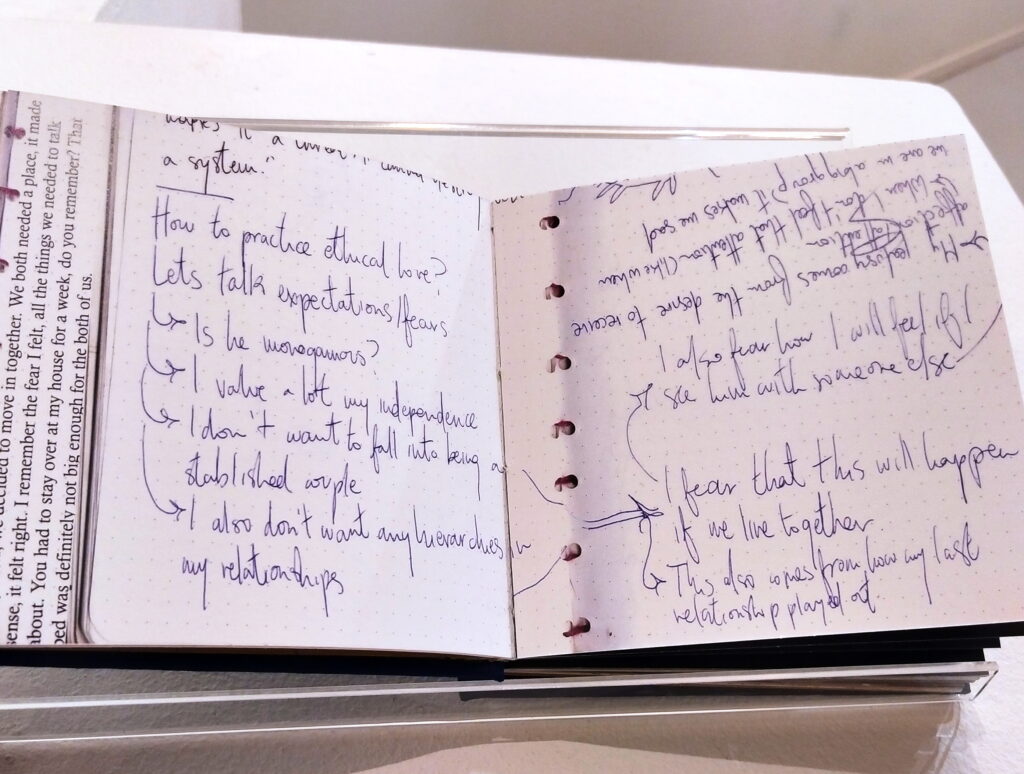 sense, it felt right. I remember the fear I felt, all the things we needed to talk
about. You had to stay over at my house for a week, do you remember? That
bed was definitely not big enough for the both of us.
decided to move in together. We both needed a place, it made
makes it a
a system."
How to practice ethical love?
Lets talk expectations/fears
Is he monogamous?
I value a lot my independence
I don't want to fall into being a
stablished couple
I also don't want any hierarchies in
my relationships
My jealousy comes from the desire to receive
affection
When I don't feel that attention (like when
we are in a big group) it makes me sad
I also fear how I will feel if I
see him with someone else
I fear that this will happen
if we live together
This also comes from how my last
relationship played out